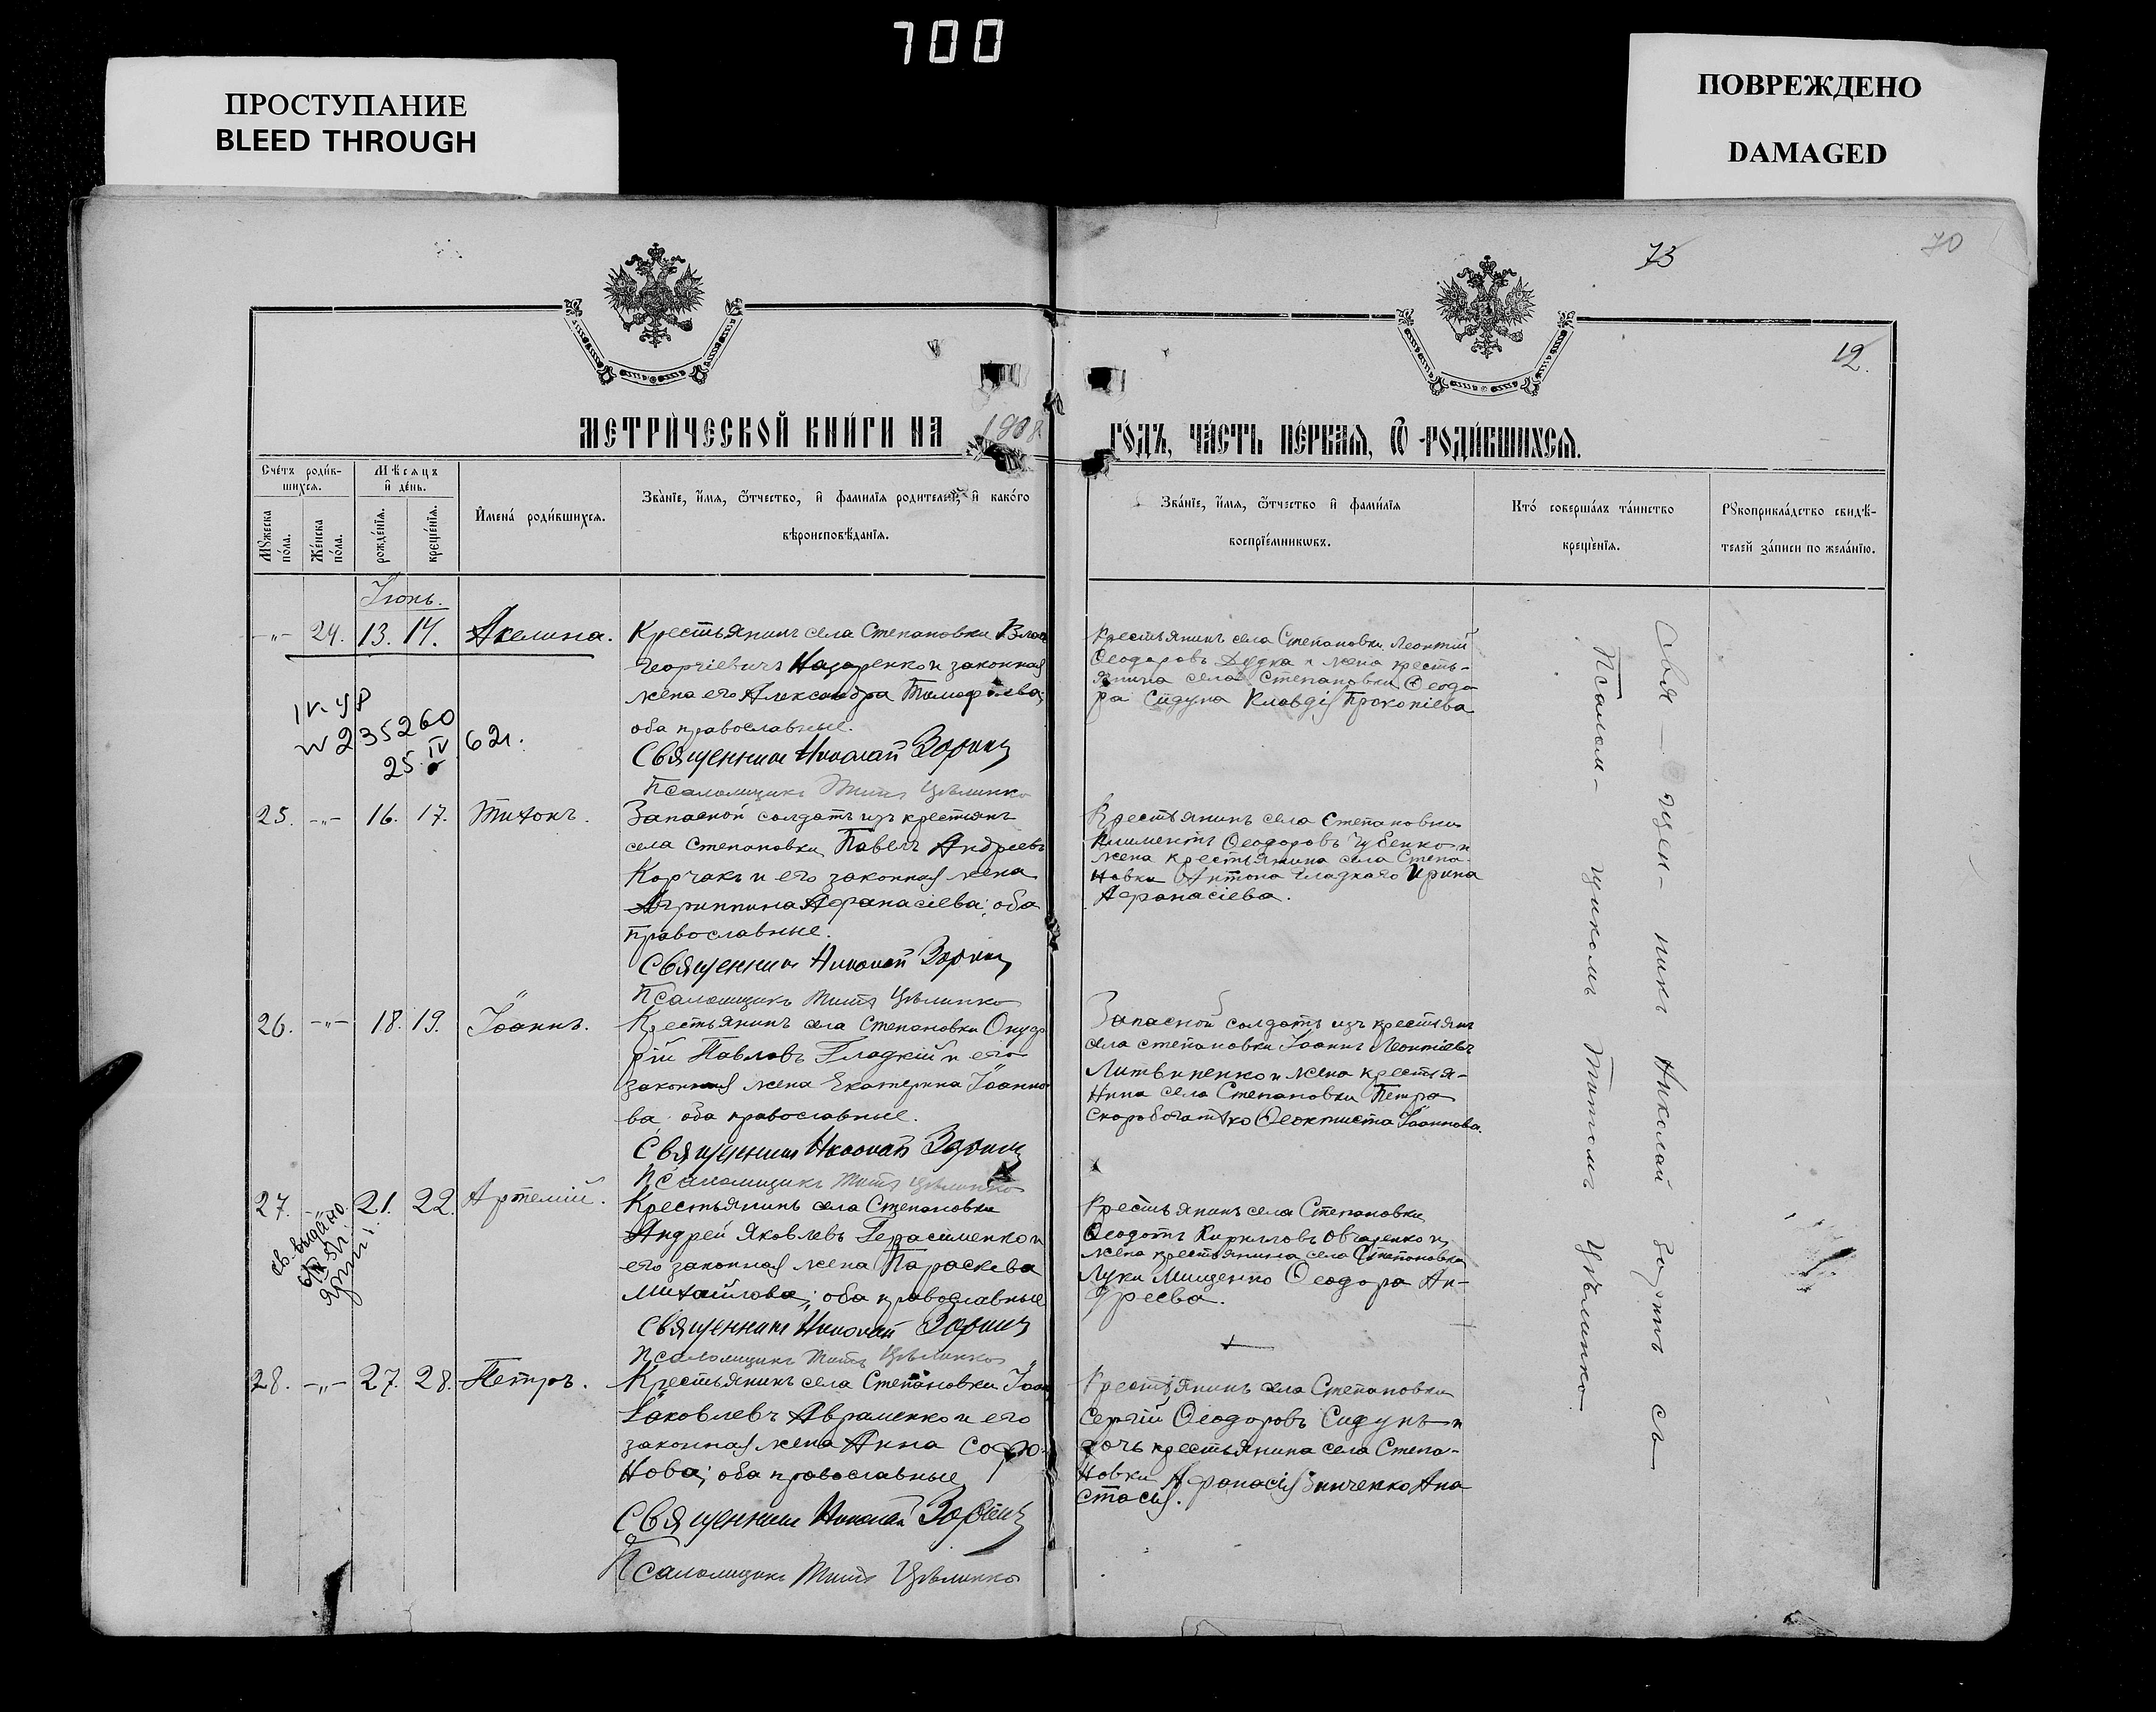 700
ПРОСТУПАНИЕ
BLEED THROUGH
ПОВРЕЖДЕНО
DAMAGED
73
70
12.
МЕТРИ́ЧЕСКОЙ КНИ́ГИ НА 1908
ГО́ДЪ, ЧА́СТЬ ПЕ́РВАЯ, Ѡ РОДИ́ВШИХСЯ.
Сче́тъ роди́в-
шихся.
Мѣ́сяцъ
и де́нь.
Мꙋ́жеска
по́ла.
Же́нска
по́ла.
рожде́нїя.
креще́нїя.
Имена́ роди́вшихся.
Зва́нїе, и́мя, ѻ́тчество, и фами́лїя родителей, и како́го
вѣроисповѣ́данїя.
Зва́нїе, и́мя, ѻ́тчество и фами́лїя
воспрїе́мниковъ.
Кто́ соверша́лъ та́инство
креще́нїя.
Рꙋкоприкла́дство свидѣ́-
телей за́писи по жела́нїю.
Іюнь.
-„- 24. 13. 14. Акелина.
Крестьянинъ села Степановки
Георгіевичъ Назаренко и законная
жена его Александра Тимофѣева;
оба православные.
Священникъ Николай Зоринъ
Псаломщикъ Титъ Цѣлинко
Крестьянинъ села Степановки Леонтій
Ѳеодоровъ Дудка и жена кресть-
янина села Степановки Ѳеодо
ра Сидуна Клавдія Прокопіева
IV. 48
N 235260
25. IV 62г.
25. -„- 16. 17. Тихонъ.
Запасной солдатъ изъ крестянъ
села Степановки Павелъ Андреевъ
Корчакъ и его законная жена
Агриппина Афанасіева; оба
православные.
Священникъ Николай Зоринъ
Псаломщикъ Титъ Цѣлинко
Крестьянинъ села Степановки
Климентъ Ѳеодоровъ Губенко и
жена крестьянина села Степа-
новки Антона Гладкаго Ирина
Афанасіева.
26. -„- 18. 19. Іоаннъ.
Крестьянинъ села Степановки Онуф
рій Павловъ Гладкій и его
законная жена Екатерина Іоанно
ва; оба православные.
Священникъ Николай Зоринъ
Псаломщикъ Титъ Цѣлинко
Запасной солдатъ изъ крестьянъ
села Степановки Іоаннъ Леонтіевъ
Литвиненко и жена крестья-
нина села Степановки Петра
Скоробогатько Ѳеоктиста Іоаннова.
27. 21. 22. Артемій.
св. выдано
Крестьянинъ села Степановки
Андрей Яковлевъ Герасименко и
его законная жена Параскева
Михайлова; оба православные
Священникъ Николай Зоринъ
Псаломщикъ Титъ Цѣлинко
Крестьянинъ села Степановки
Ѳеодотъ Кирилловъ Овчаренко и
жена крестьянина села Степановки
Луки Мищенко Ѳеодора Ан-
дреева.
28. -„- 27. 28. Петръ.
Крестьянинъ села Степановки Іоан
Яковлевъ Авраменко и его
законная жена Анна Софро-
нова; оба православные
Священникъ Николай Зоринъ
Псаломщикъ Титъ Цѣлинко
Крестьянинъ села Степановки
Сергій Ѳеодоровъ Сидунъ и
дочь крестьянина села Степа-
новки Афанасія Зинченко Ана
стасія.
Свя- щен- никъ Николай Зоринъ съ
Псалом- щикомъ Титомъ Цѣлинко